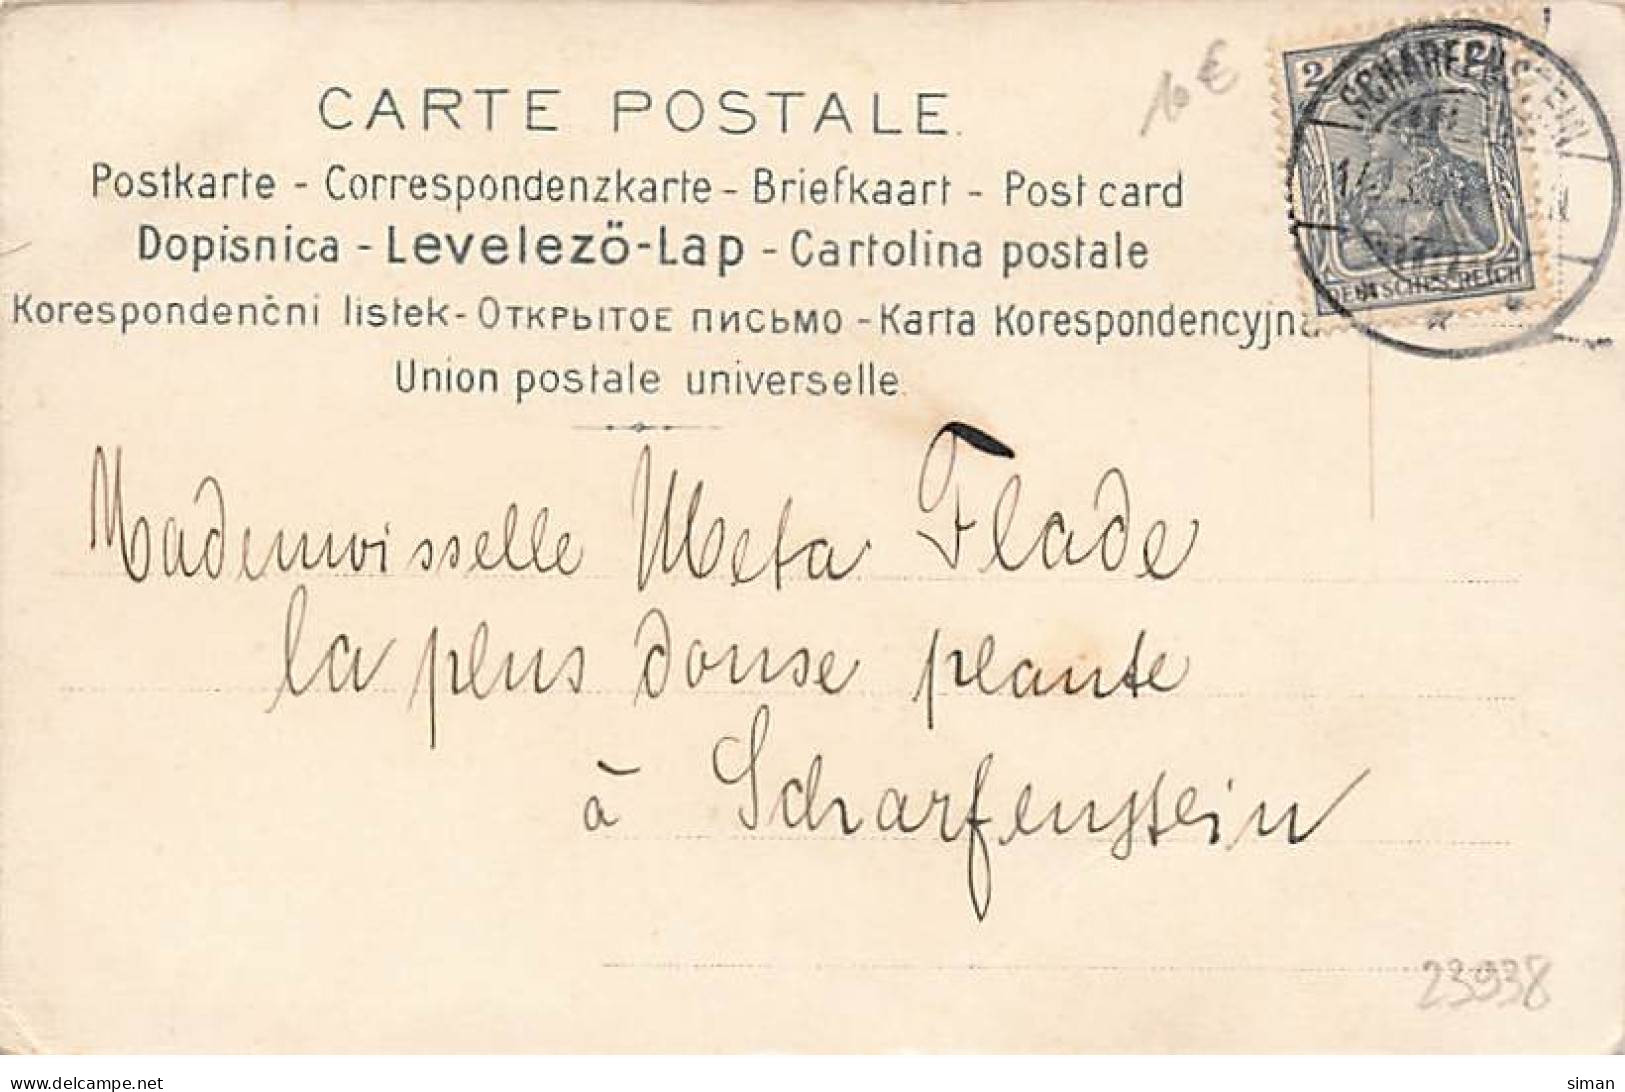 CARTE POSTALE.
Postkarte - Correspondenzkarte - Briefkaart - Post card
Dopisnica - Levelezö-Lap - Cartolina postale
Korespondenčni listek - Открытое письмо - Karta Korespondencyjna
Union postale universelle.
10 €
2
SCHARFENSTEIN
DEUTSCHES REICH
Mademoiselle Meta Flade
la plus douse plante
à Scharfenstein
23938
www.delcampe.net
siman